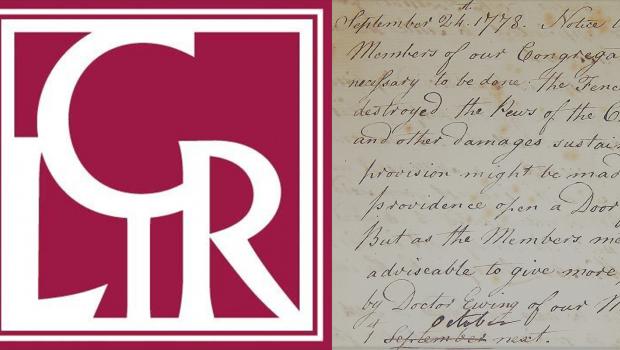 CLIR
September 24.th 1778. Notice
Members of our Congrega
neceſsary to be done the Fenc
destroyed the Pews of the C
and other damages sustain
provision might be mad
providence open a Door
But as the Members me
adviseable to give more
by Doctor Ewing of our M
October
4 September next.